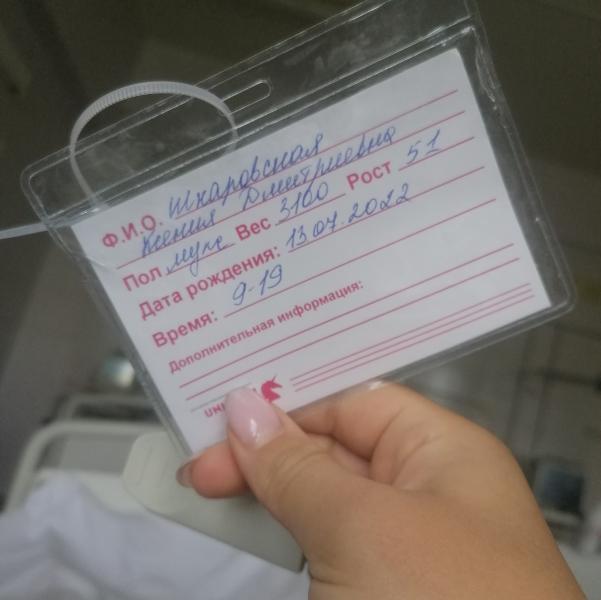 Ф.И.О. Шкаровская
Ксения Дмитриевна
Пол муж Вес 3160 Рост 51
Дата рождения: 13.07.2022
Время: 9-19
Дополнительная информация: